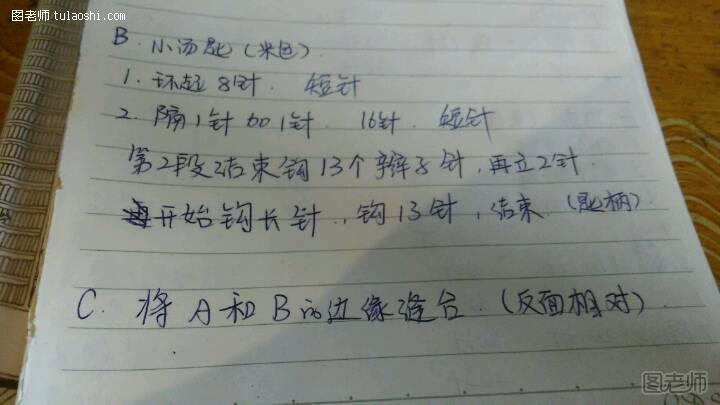 图老师 tulaoshi.com
B. 小汤匙(米色).
1. 环起8针. 短针
2. 隔1针加1针. 16针. 短针
第2段结束钩13个辫子针,再立2针.
开始钩长针.,钩13针,结束.(匙柄)
C. 将A和B的边缘缝合.(反面相对).
图老师